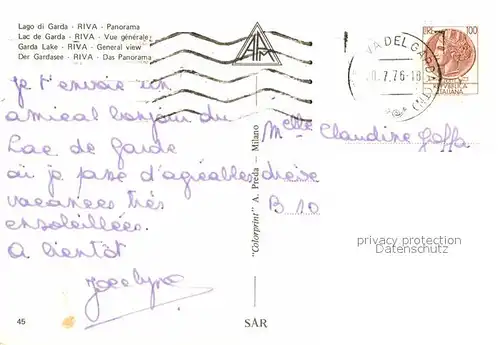 Lago di Garda - RIVA - Panorama
Lac de Garda - RIVA - Vue générale
Garda Lake - RIVA - General view
Der Gardasee - RIVA - Das Panorama
je t'envoie un
amical bonjour du
Lac de Garde
où je passe d'agréables
vacances très
ensoleillées.
A bientôt
Jocelyne
45
"Colorprint" A. Preda — Milano
SAR
LIRE 100
REPVBBLICA
ITALIANA
RIVA DEL GARDA (TN)
.7.76-18
Melle Claudine
B 10
privacy protection
Datenschutz